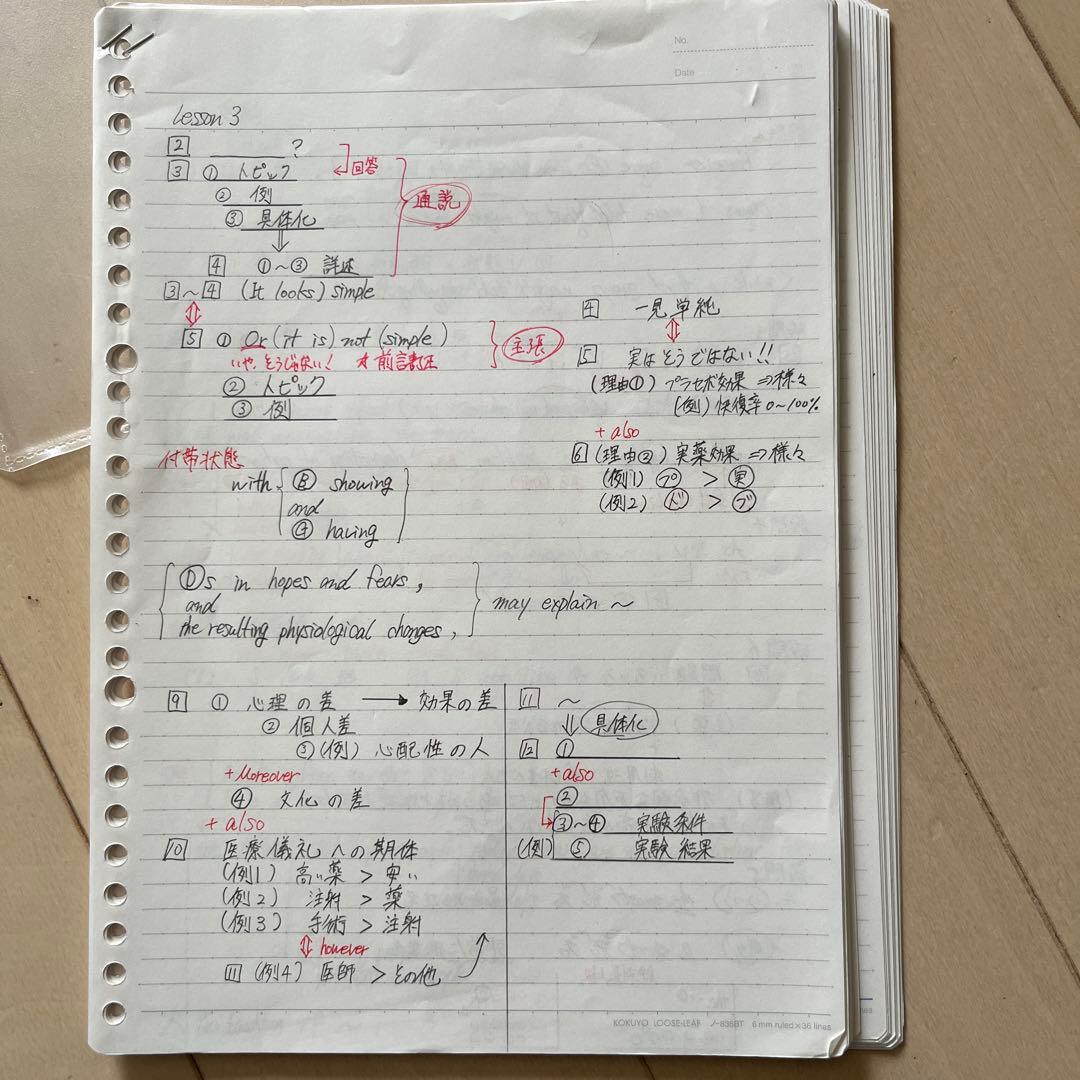 No.
Date
Lesson 3
2 ______ ?
3 ① トピック 回答
② 例 通説
③ 具体化
⇓
4 ①～③ 詳述
3～4 (It looks) simple
⇕
5 ① Or (it is) not (simple) 主張
いや、そうじゃない! ☆前言訂正
② トピック
③ 例
4 一見単純
⇕
5 実はそうではない!!
(理由①) プラセボ効果 ⇒様々
(例) 快復率0～100%
+ also
6 (理由②) 実薬効果 ⇒様々
(例1) プ > 実
(例2) > ブ
付帯状態
with B showing
and
G having
Ⓓs in hopes and fears,
and may explain ～
the resulting physiological changes,
9 ① 心理の差 → 効果の差
② 個人差
③(例) 心配性の人
+ Moreover
④ 文化の差
+ also
10 医療儀礼への期待
(例1) 高い薬 > 安い
(例2) 注射 > 薬
(例3) 手術 > 注射
⇕ however
11 (例4) 医師 > その他
11 ～
⇓ 具体化
12 ①
+ also
②
③～④ 実験条件
(例) ⑤ 実験結果
KOKUYO LOOSE-LEAF ノ-836BT 6mm ruled×36 lines
nes